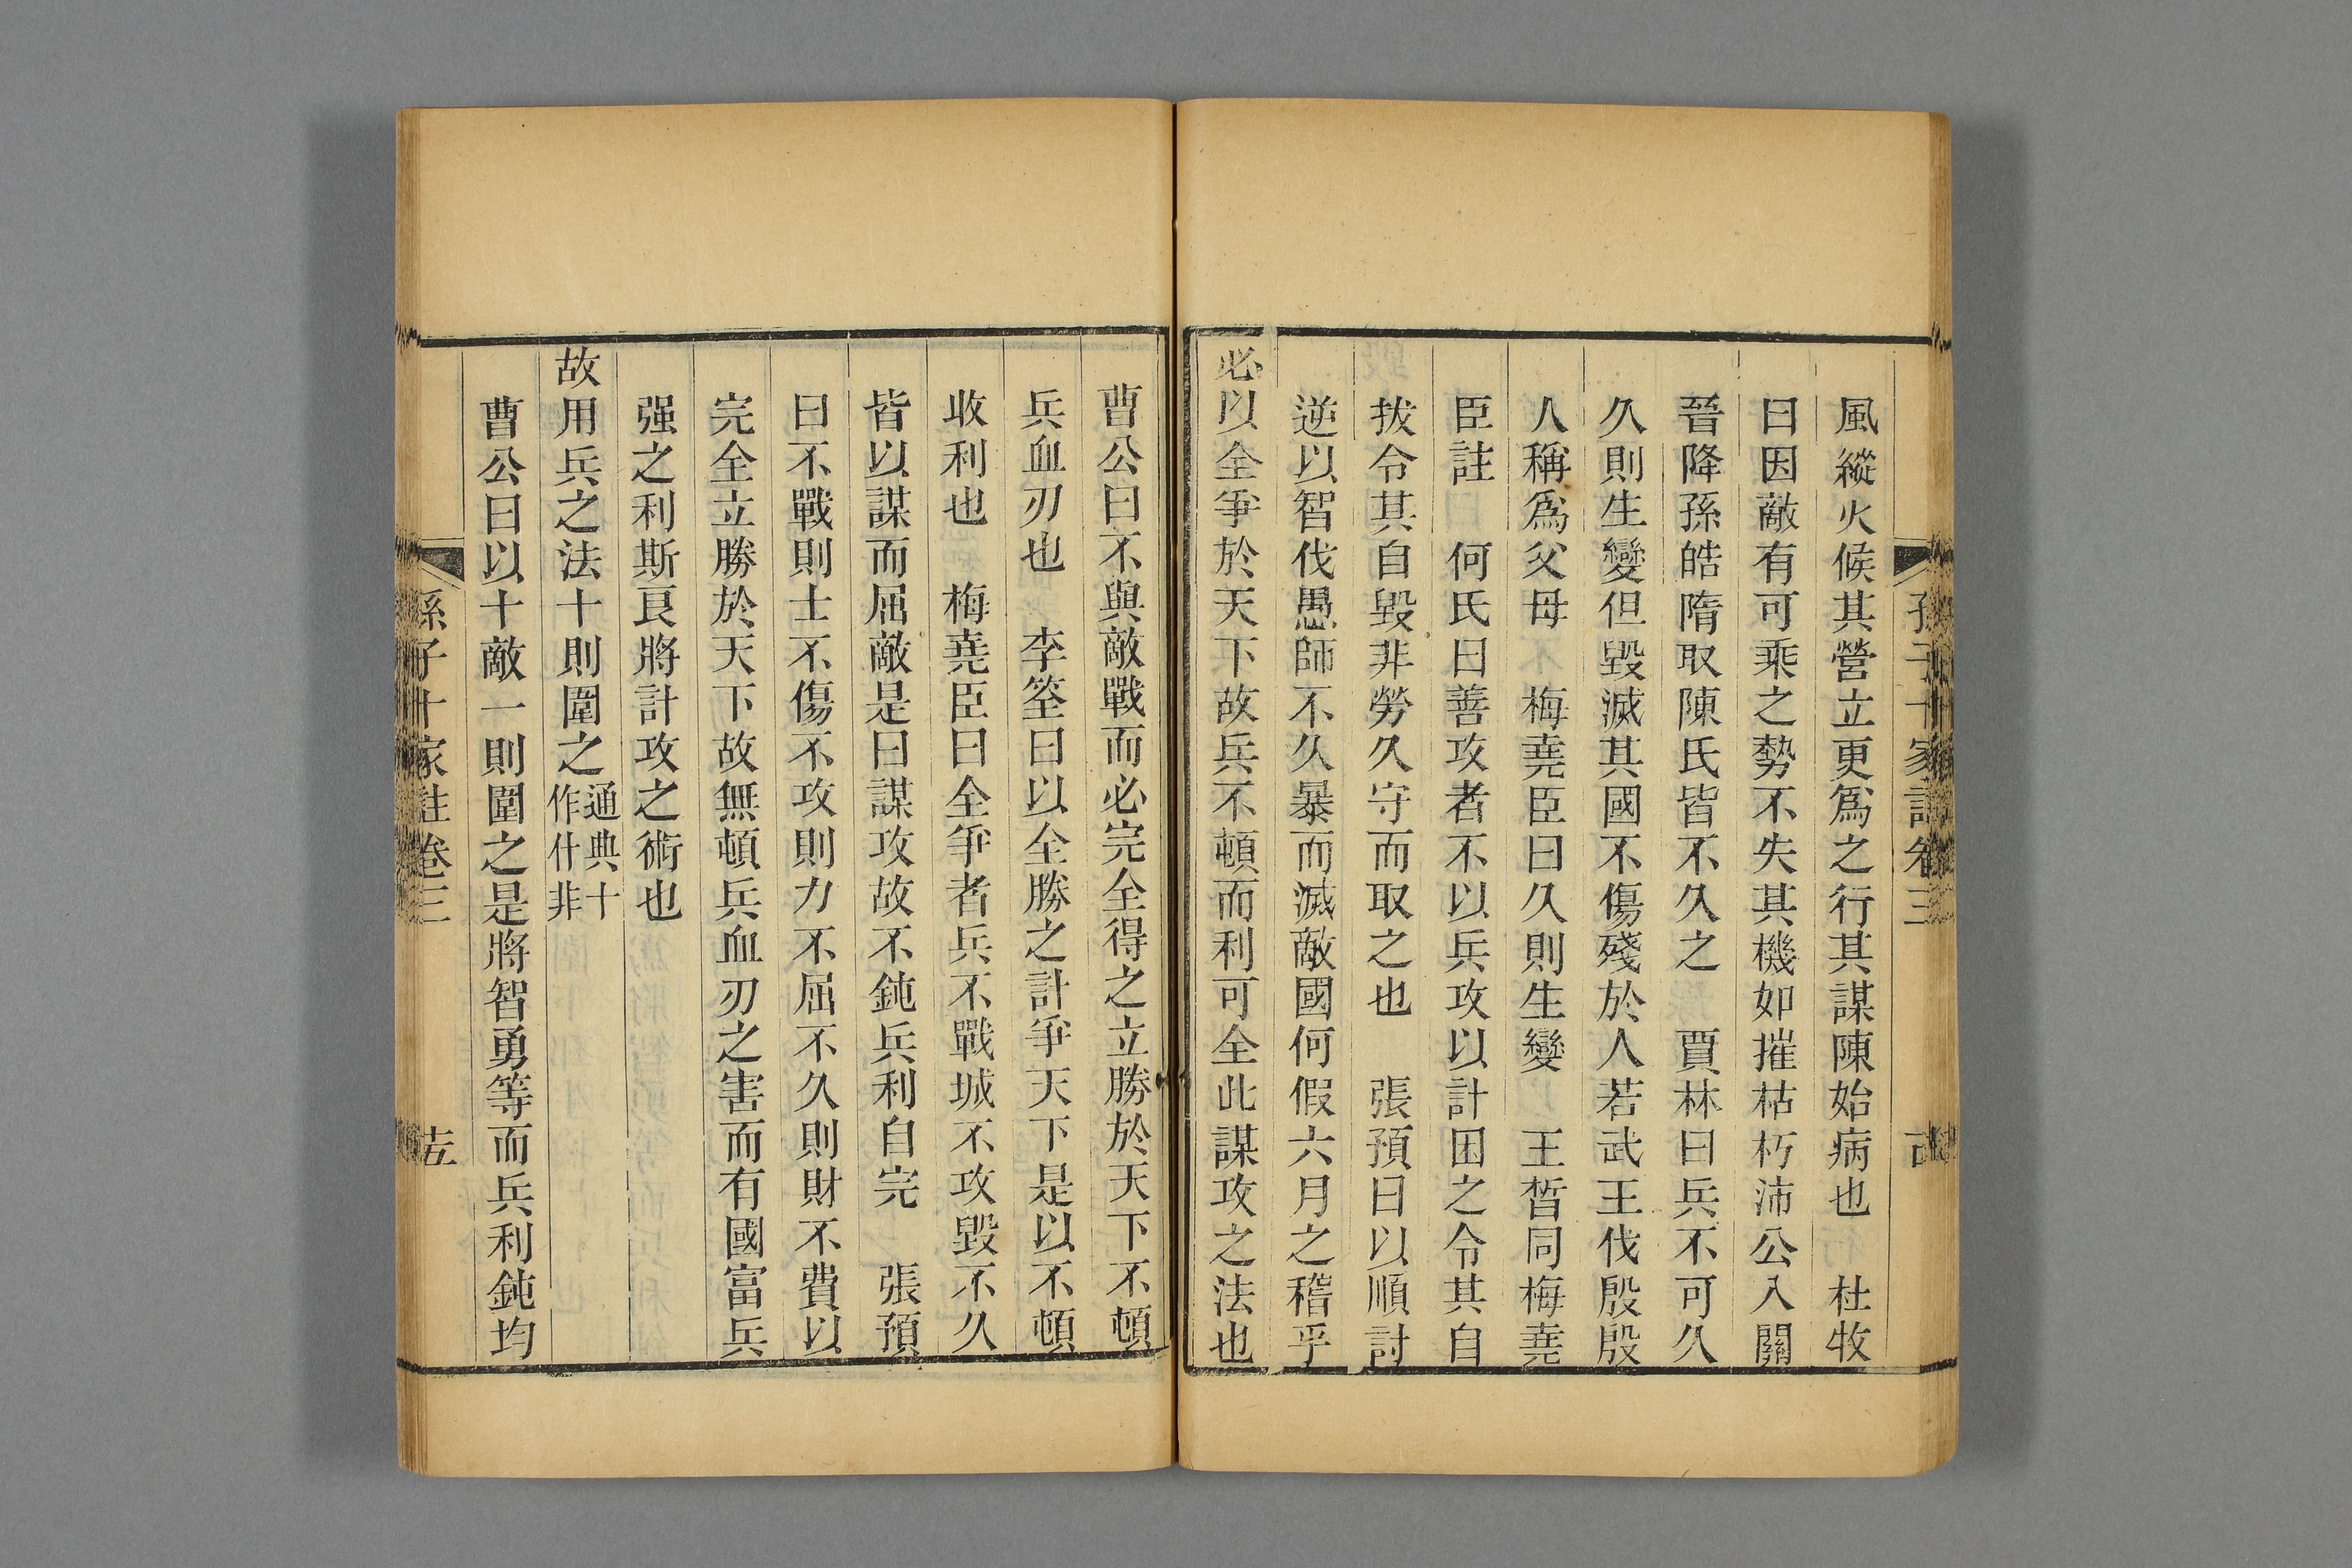 孫子十家註卷三
風縱火候其營立更爲之行其謀陳始病也 杜牧
曰因敵有可乘之勢不失其機如摧枯朽沛公入關
晉降孫皓隋取陳氏皆不久之 賈林曰兵不可久
久則生變但毀滅其國不傷殘於人若武王伐殷殷
人稱爲父母 梅堯臣曰久則生變 王晳同梅堯
臣註 何氏曰善攻者不以兵攻以計困之令其自
拔令其自毀非勞久守而取之也 張預曰以順討
逆以智伐愚師不久暴而滅敵國何假六月之稽乎
必以全爭於天下故兵不頓而利可全此謀攻之法也
曹公曰不與敵戰而必完全得之立勝於天下不頓
兵血刃也 李筌曰以全勝之計爭天下是以不頓
收利也 梅堯臣曰全爭者兵不戰城不攻毀不久
皆以謀而屈敵是曰謀攻故不鈍兵利自完 張預
曰不戰則士不傷不攻則力不屈不久則財不費以
完全立勝於天下故無頓兵血刃之害而有國富兵
强之利斯良將計攻之術也
故用兵之法十則圍之通典十作什非
曹公曰以十敵一則圍之是將智勇等而兵利鈍均
孫子十家註卷三